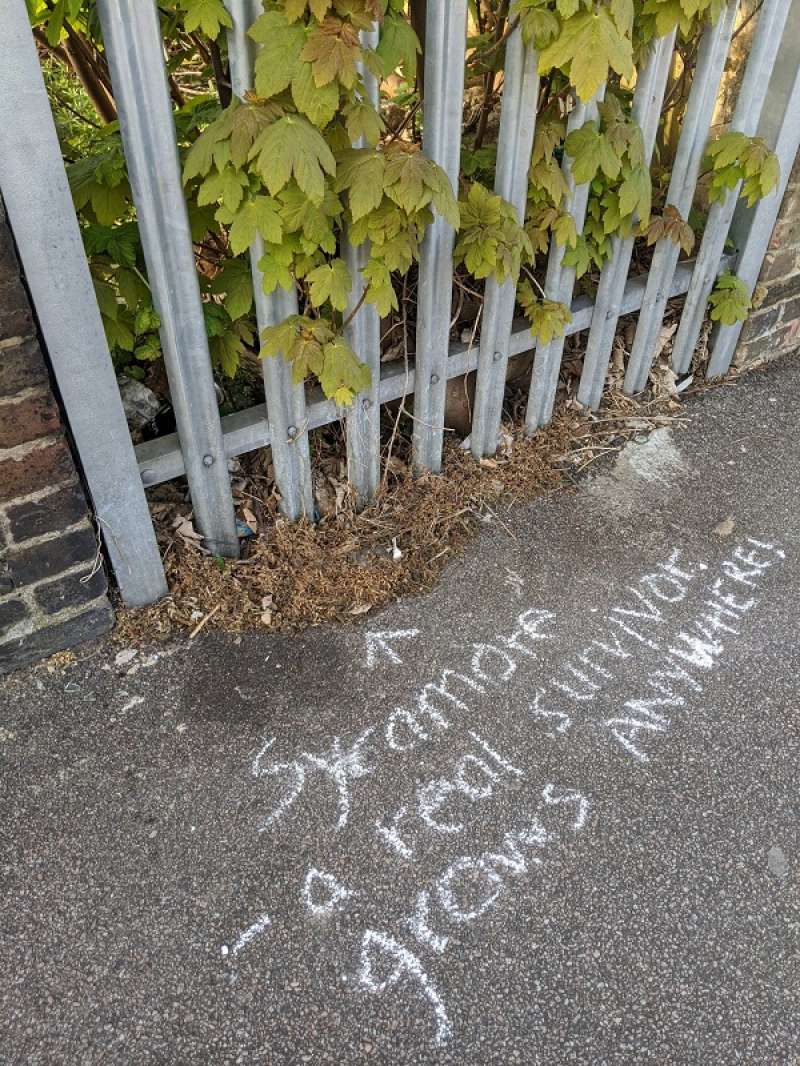 Sycamore
- a real survivor.
grows ANYWHERE!